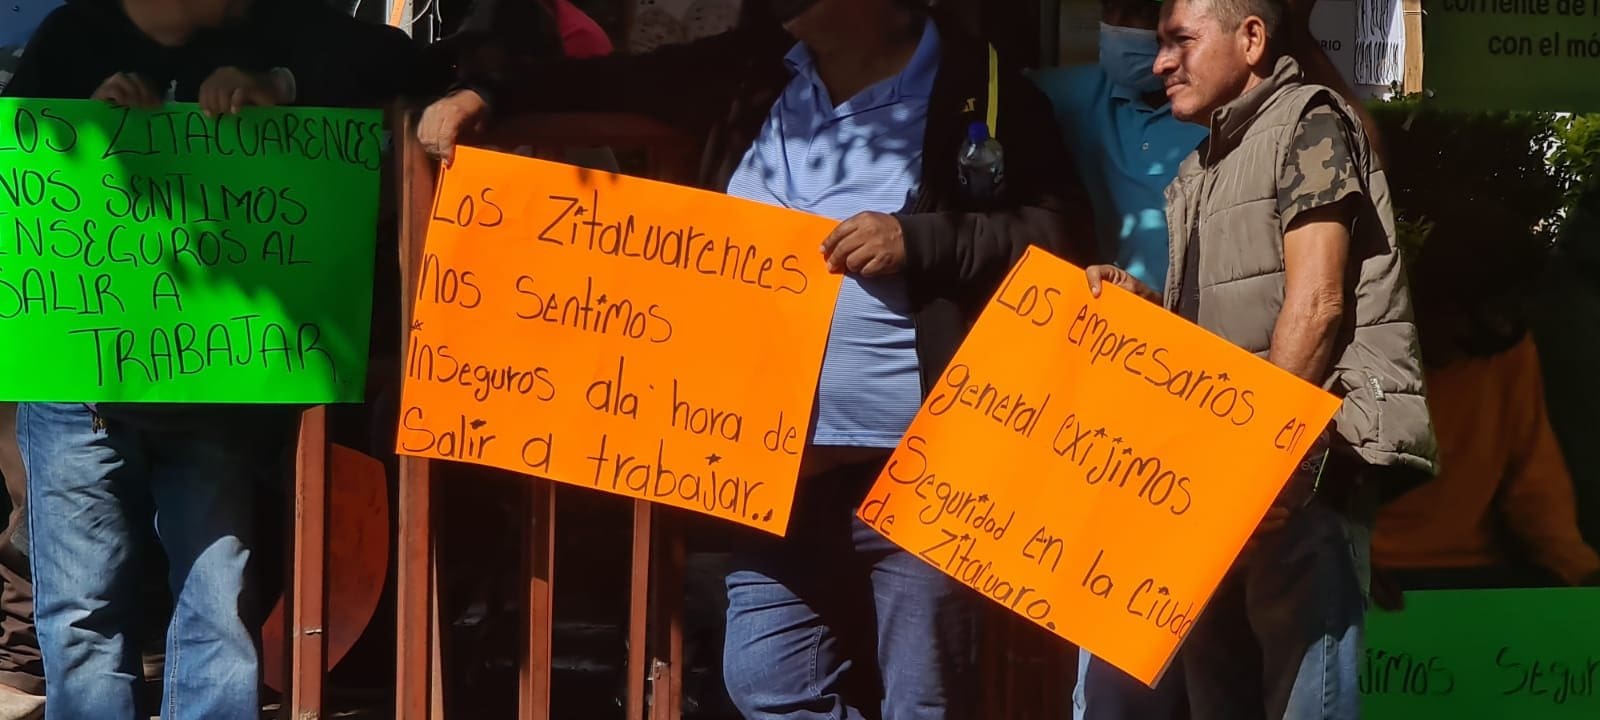 LOS ZITACUARENCES
NOS SENTIMOS
INSEGUROS AL
SALIR A
TRABAJAR
Los Zitacuarences
nos sentimos
inseguros ala hora de
Salir a trabajar..
Los empresarios en
general exijimos
Seguridad en la Ciuda
de Zitacuaro.
corriente de
con el mó
RIO
jimos Segur